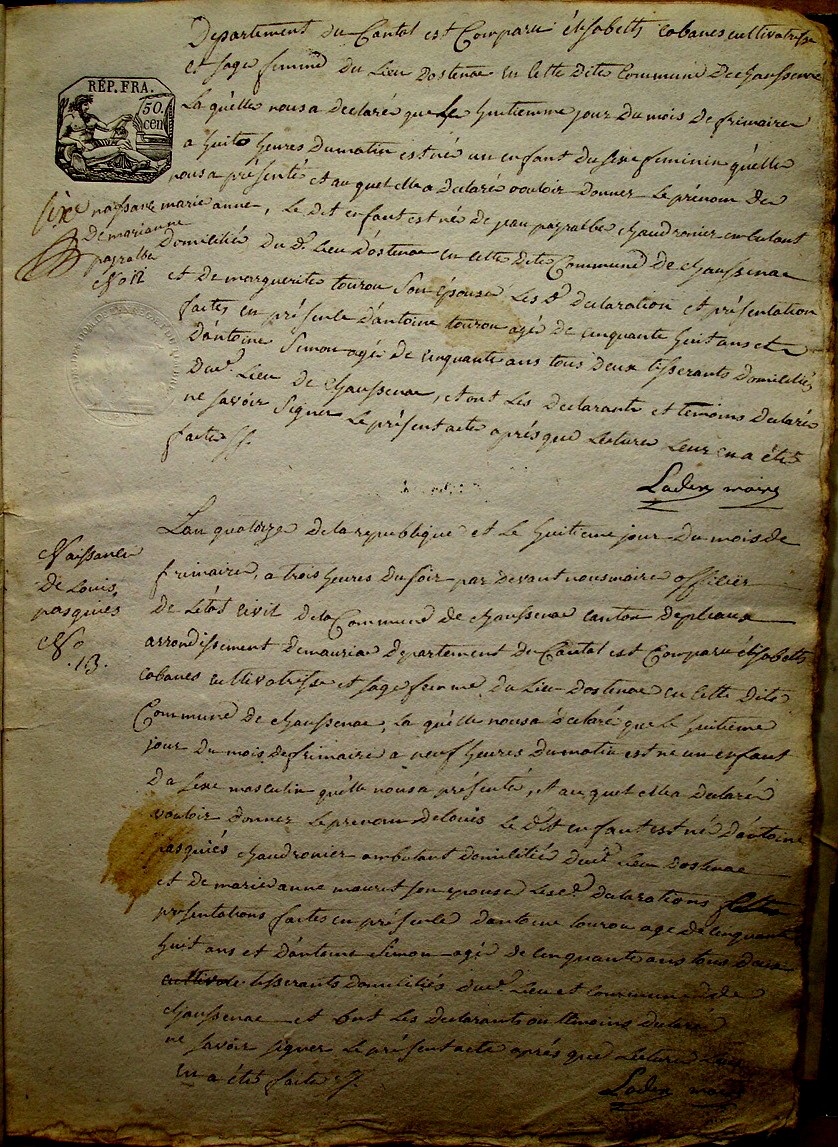 Departement du Cantal est Comparu élisabetts Cabanes cultivatrisse
et sage femme du Lieu Dostenac en Cette Dite Commune De chaussenac
RÉP. FRA.
50
cen
La quelle nous a declaré que le huitiemme jour du mois de frimaire
a huit heures du matin est né un enfant du sexe feminin quelle
nous a présenté et auquel elle a Déclaré vouloir Donner Le prénom De
marie anne, Le Dit enfant est né De jean payralbe chaudronier ambulant
naissance
De marianne
payralbe
No 12
Domicilié Du d. Lieu D'ostenac en Cette Dite Commune De chaussenac
et De marguerite tourou Son épouse Les d. Declaration et présentation
faites en présence D'antoine tourou agé De cinquante huit ans et
D'antoine Simon agé De cinquante ans tous Deux tisserants Domiciliés
Du d. Lieu De chaussenac, et ont Les Declarants et temoins Declaré
ne savoir signer Le présent acte après que Lecture Leur en a été
faite
Laden maire
Naissance
De Louis
pasquiés
No
.13.
L'an quatorze De la republique et Le huitieme jour Du mois de
frimaire, a trois heures Du soir par devant nous maire officier
De L'état civil De la Commune De chaussenac canton De pleaux
arrondissement De mauriac Departement Du Cantal est Comparu élisabetts
Cabanes cultivatrisse et sage femme Du Lieu Dostenac en Cette Dite
Commune De chaussenac, La quelle nous a Déclaré que Le huitieme
jour Du mois De frimaire a neuf heures Du matin est né un enfant
Du sexe masculin quelle nous a présenté, et auquel elle a Declaré
vouloir Donner Le prenom De Louis Le Dit enfant est né D'antoine
pasquiés chaudronier ambulant Domicilié Du d. Lieu Dostenac
et De marie anne mauret son epouse Les d. Declarations
présentations faites en présence D'antoine tourou agé De cinquante
huit ans et D'antoine Simon agé De cinquante ans tous Deux
tisserants Domiciliés Du d. Lieu et Commune De
chaussenac et ont Les Declarants ou temoins Declaré
ne savoir signer Le présent acte après que Lecture Leur
en a été faite
Laden maire